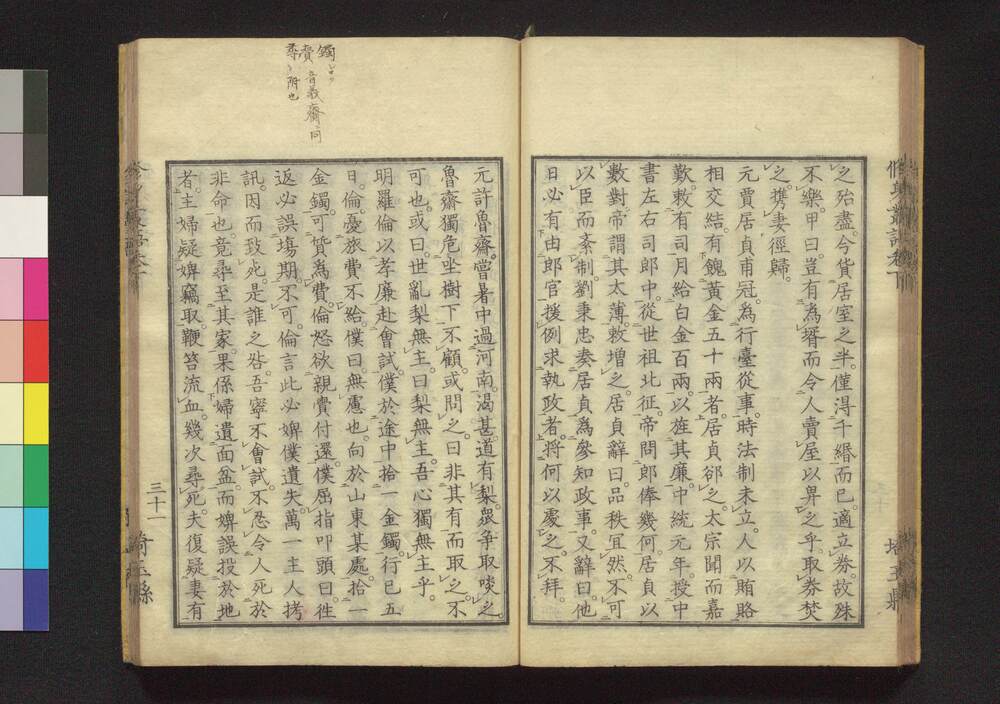 之殆盡。今貨居室之半。僅得千緡而已。適立券。故殊
不樂。甲曰。豈有為壻而令人賣屋以畀之乎。取券焚
之。携妻徑歸。
元賈居貞甫冠。為行臺從事。時法制未立。人以賄賂
相交結。有餽黃金五十兩者。居貞郤之。太宗聞而嘉
歎。敕有司月給白金百兩。以旌其廉。中統元年。授中
書左右司郎中。從世祖北征。帝問郎俸幾何。居貞以
數對。帝謂其太薄。敕增之。居貞辭曰。品秩宜然。不可
以臣而紊制。劉秉忠奏居貞為參知政事。又辭曰。他
日必有由郎官援例求執政者。將何以處之。不拜。
元許魯齋。嘗暑中過河南。渴甚。道有梨。眾争取啖之。
魯齋獨危坐樹下不顧。或問之。曰非其有而取之。不
可也。或曰。世亂梨無主。曰梨無主。吾心獨無主乎。
明羅倫以孝廉赴會試。僕於途中拾一金鐲。行已五
日。倫憂旅費不給。僕曰。無慮也。向於山東某處。拾一
金鐲。可貨為費。倫怒欲親賫付還。僕屈指叩頭曰。徃
返必誤塲期。不可。倫言此必婢僕遺失。萬一主人拷
訊。因而致死。是誰之咎。吾寧不會試。不忍令人死於
非命也。竟尋至其家。果係婦遺面盆。而婢誤投於地
者。主婦疑婢竊取。鞭笞流血。幾次尋死。夫復疑妻有
三十一
鐲
賫 音義齋同